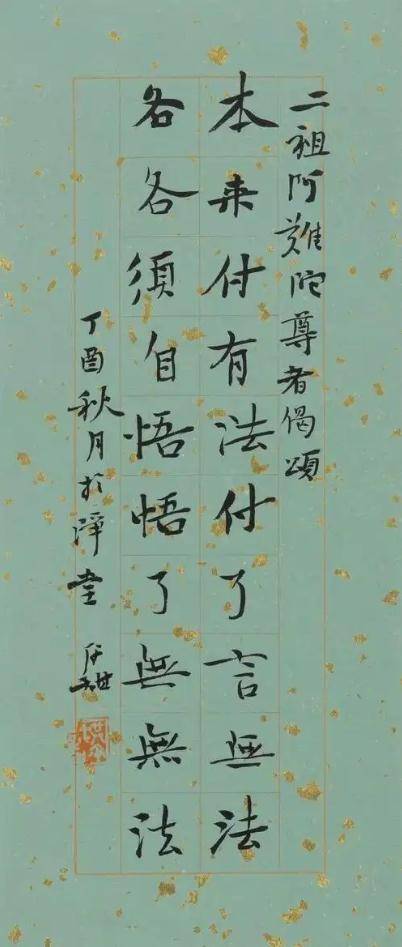 二祖阿難陀尊者偈頌
本来付有法付了言無法
各各須自悟悟了無無法
丁酉秋月於淨堂